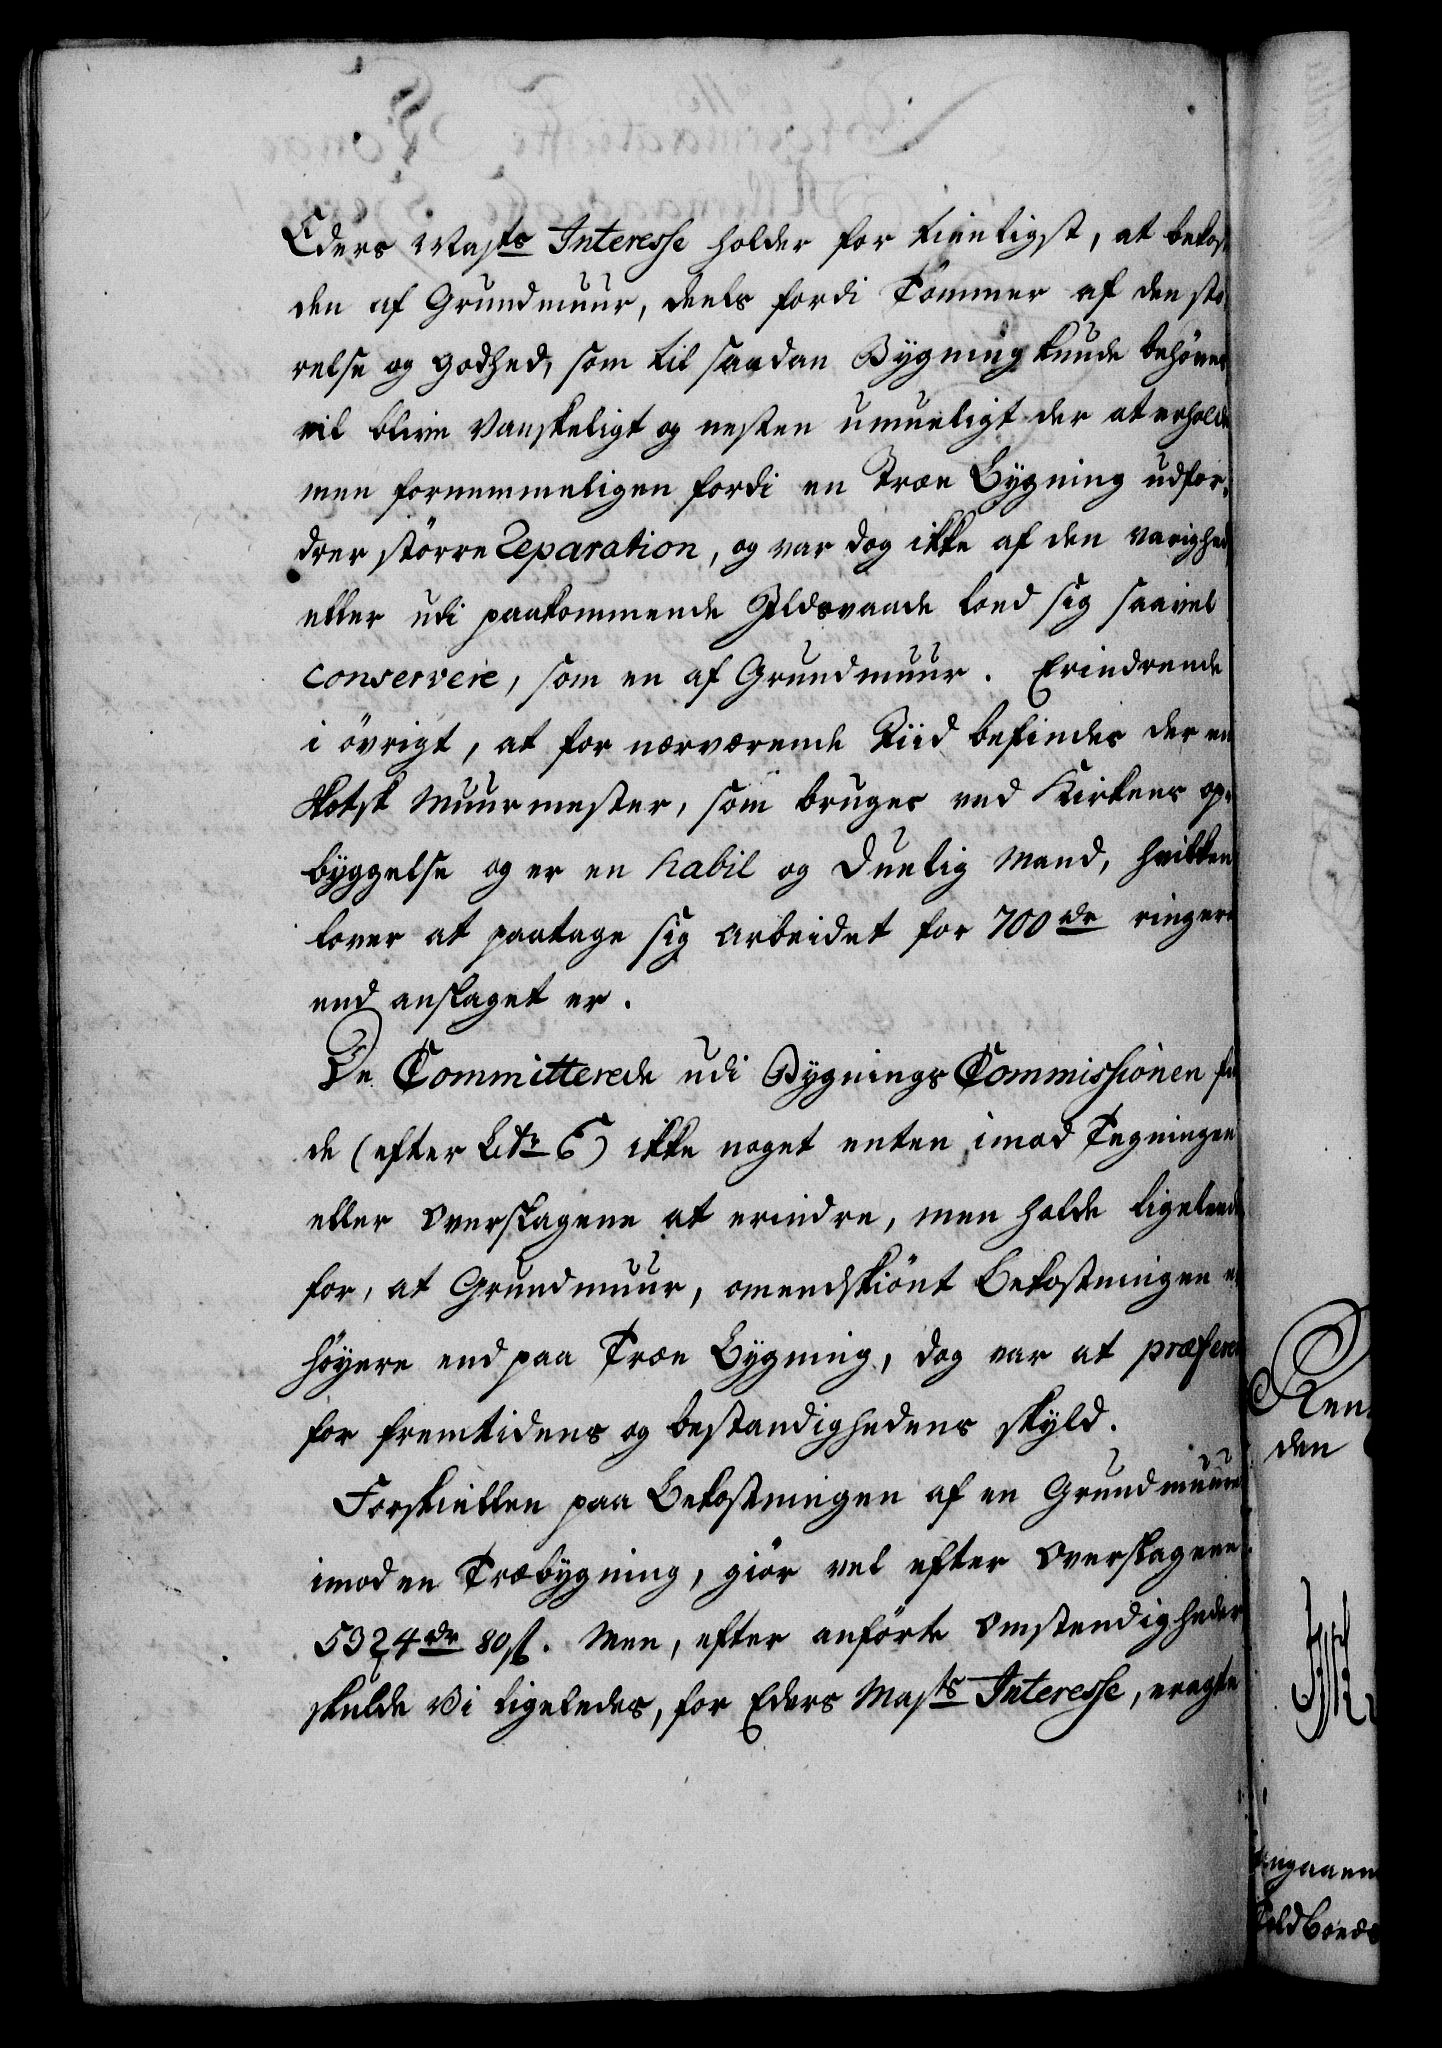 Eders Maj:ts Interesse holder for tienligst, at bekos-
den af Grundmuur, deels fordi Tömmer af den stö-
relse og godhed, som til saadan Bygning kunde behöves
vil blive vanskeligt og nesten umueligt der at erholde
men fornemmeligen fordi en Træe Bygning udfor-
drer större Reparation, og var dog ikke af den varighed
eller udi paakommende Ildsvaade loed sig saavel
conservere, som en af Grundmuur. Erindrende
i övrigt, at for nærværende Tiid befindes der en
Skotsk Muurmester, som bruges ved Kirkens op-
byggelse og er en habil og duelig Mand, hvilken
lover at paatage sig arbeidet for 700 rdr ringere
end anslaget er.
De Committerede udi Bygnings Commissionen fin
de (efter Ltr. 6) ikke noget enten imod Tegningen
eller Overslagene at erindre, men holde ligeleedes
for, at Grundmuur, omendskiönt Bekostningen er
höyere end paa Træe Bygning, dog var at præferere
for fremtidens og bestandighedens skyld.
Forskiellen paa Bekostningen af en Grundmuur
imod en Træbygning, giör vel efter Overslagene
5324 rdr 80 ß. Men, efter anförte Omstendigheder
skulde Vi ligeledes, for Eders Maj:ts Interesse, eragte
Ren
den
angaaen
Toldboeds